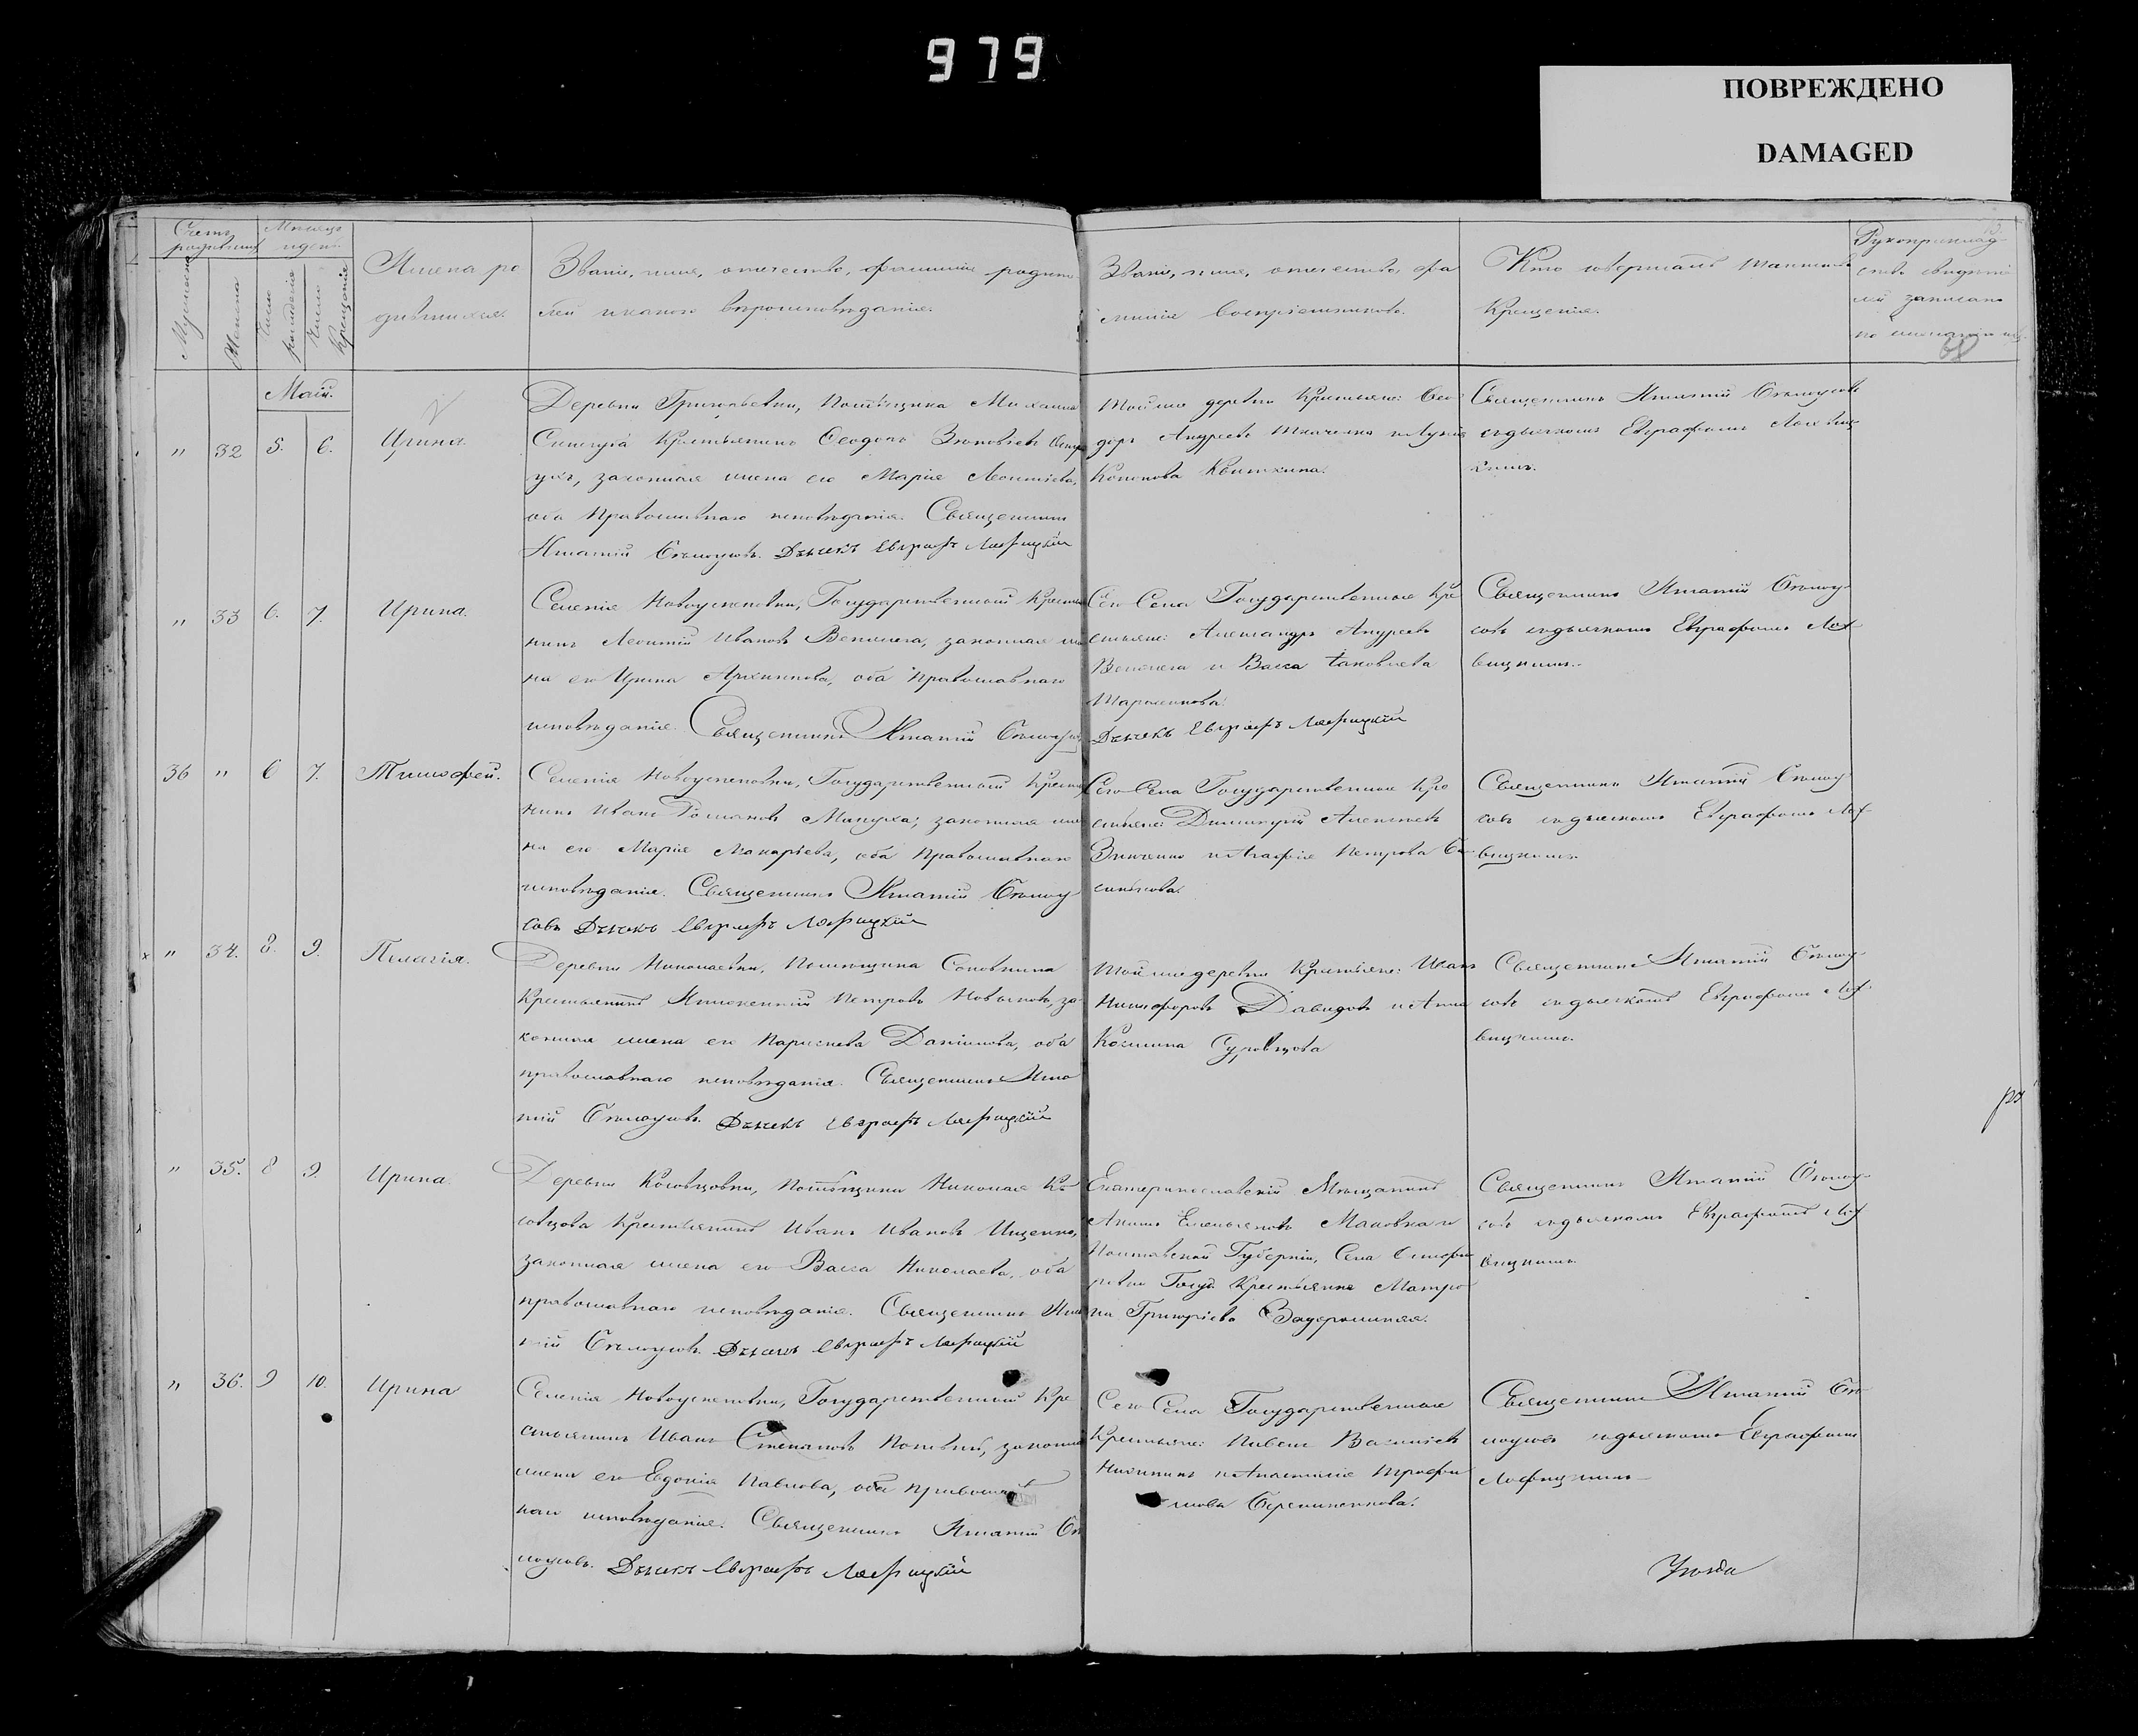 979
ПОВРЕЖДЕНО
DAMAGED
Счетъ родившихся
Мѣсяцъ и день
Мужеска
Женска
Число рожденія
Число крещенія
Имена ро
дившихся.
Званіе, имя, отечество, фамилія родите
лей и какого вѣроисповѣданія.
Званіе, имя, отечество, фа
милія воспріемниковъ.
Кто совершалъ таинство
Крещенія.
Рукоприклад
ство свидѣте
лей записано
по желанію ихъ
68
Май.
" 32 5. 6. Ирина.
Деревни Григорьевки, Помѣщика Михаила
Синегуба Крестьянинъ Ѳеодоръ
законная жена его Марія Леонтіева,
оба Православнаго исповѣданія. Священникъ
Игнатій Бѣлоусовъ. Дьячекъ Евграфъ Лохвицкій
Той же деревни Крестьяне: Ѳео
доръ Андреевъ Ткаченко и
Кононова Квиткина.
Священникъ Игнатій Бѣлоусовъ
съ дьячкомъ Евграфомъ Лохвиц
кимъ.
" 33 6. 7. Ирина.
Селенія Новоуспеновки, Государственный Крестья
нинъ Леонтій Ивановъ законная же
на его Ирина Архипова, оба Православнаго
исповѣданія. Священникъ Игнатій Бѣлоусовъ
Сего Села Государственные Кре
стьяне: Александръ Андреевъ
и Васса Яковлева
Дьячекъ Евграфъ Лохвицкій
Священникъ Игнатій Бѣлоу
совъ съ дьячкомъ Евграфомъ Лох
вицкимъ.
36 " 6 7. Тимофей.
Селенія Новоуспеновки, Государственный Крестья
нинъ Иванъ Романовъ законная же
на его Марія Макарьева, оба Православнаго
исповѣданія. Священникъ Игнатій Бѣлоу
совъ Дьячекъ Евграфъ Лохвицкій
Сего Села Государственные Кре
стьяне: Димитрій Алексѣевъ
Зинченко и Агафія Петрова
Священникъ Игнатій Бѣлоу
совъ съ дьячкомъ Евграфомъ Лох
вицкимъ.
" 34. 8. 9. Пелагія.
Деревни Николаевки, Помѣщика
Крестьянинъ Иннокентій Петровъ за
конная жена его Даніилова, оба
православнаго исповѣданія. Священникъ Игна
тій Бѣлоусовъ. Дьячекъ Евграфъ Лохвицкій
Той же деревни Крестьяне: Иванъ
Никифоровъ Давидовъ и Анна
Космина Суровцова
Священникъ Игнатій Бѣлоу
совъ съ дьячкомъ Евграфомъ Лох
вицкимъ.
" 35. 8 9. Ирина.
Деревни Коговцовки, Помѣщика Николая Ко
говцова Крестьянинъ Иванъ Ивановъ Ищенко,
законная жена его Васса Николаева, оба
православнаго исповѣданія. Священникъ Игна
тій Бѣлоусовъ. Дьячекъ Евграфъ Лохвицкій
Екатеринославскій Мѣщанинъ
Емельяновъ Маковка и
Полтавской Губерніи, Села
Госуд. Крестьянка Матро
на Григорьева Задерошная.
Священникъ Игнатій Бѣлоу
совъ съ дьячкомъ Евграфомъ Лох
вицкимъ.
" 36. 9 10. Ирина
Селенія Новоуспеновки, Государственный Кре
стьянинъ Иванъ Степановъ законная
жена его Евдокія Павлова, оба православ
наго исповѣданія. Священникъ Игнатій Бѣ
лоусовъ. Дьячекъ Евграфъ Лохвицкій
Сего Села Государственные
Крестьяне: Павелъ Васильевъ
и Анастасія Трофи
мова
Священникъ Игнатій Бѣ
лоусовъ съ дьячкомъ Евграфомъ
Лохвицкимъ